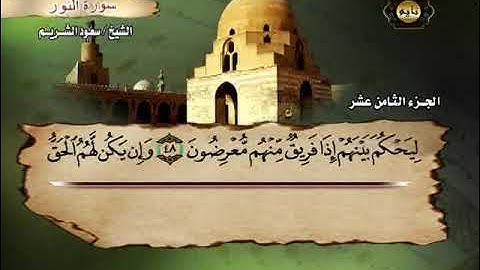 سورة النور
الشيخ / سعود الشريم
الجزء الثامن عشر
لِيَحْكُمَ بَيْنَهُمْ إِذَا فَرِيقٌ مِّنْهُم مُّعْرِضُونَ ٤٨ وَإِن يَكُن لَّهُمُ ٱلْحَقُّ